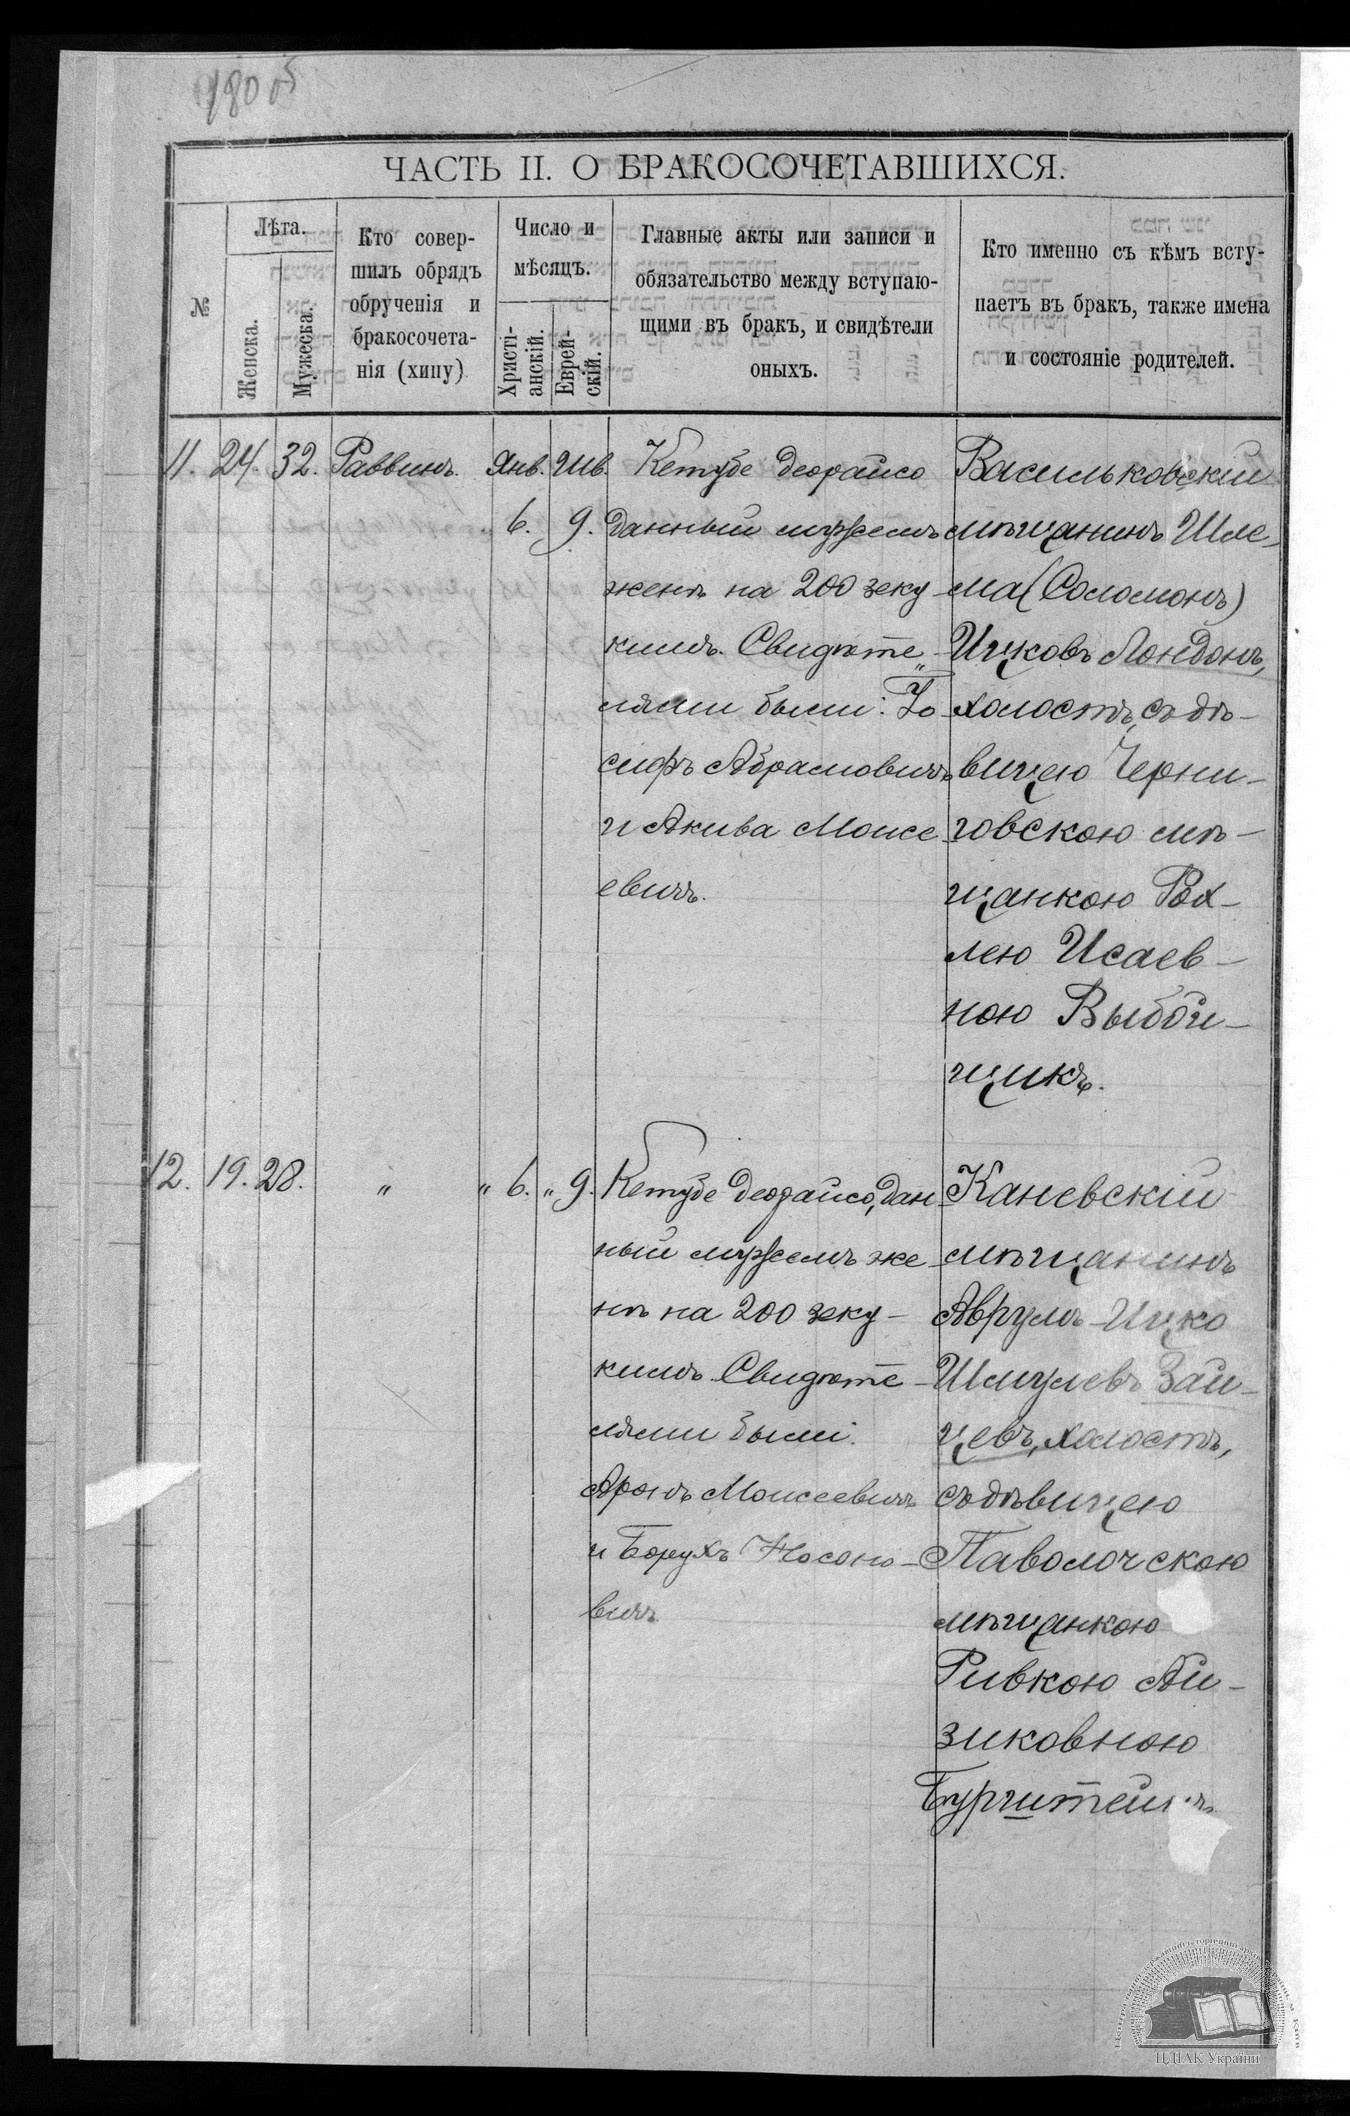 980 об
ЧАСТЬ II. О БРАКОСОЧЕТАВШИХСЯ.
№
Лѣта.
Женска.
Мужеска.
Кто совер-
шилъ обрядъ
обрученія и
бракосочета-
нія (хипу)
Число и
мѣсяцъ.
Христі-
анскій.
Еврей-
скій.
Главные акты или записи и
обязательство между вступаю-
щими въ бракъ, и свидѣтели
оныхъ.
Кто именно съ кѣмъ всту-
паетъ въ бракъ, также имена
и состояніе родителей.
11. 24. 32. Раввинъ. Янв. Шв.
6. 9.
Кетубе деорайсо
данный мужемъ
женѣ на 200 зеку
кимъ. Свидѣте
лями были: Іо
сифъ Абрамовичъ
и Акива Моисе
евичъ.
Васильковскій
мѣщанинъ Шле-
ма (Соломонъ)
Ицковъ Лондонъ,
холостъ, съ дѣ-
вицею Черни-
говскою мѣ-
щанкою Рох-
лею Исаев-
ною Выбой-
щикъ.
12. 19. 28. " " 6. " 9.
Кетубе деорайсо, дан
ный мужемъ же
нѣ на 200 зеку-
кимъ. Свидѣте
лями были:
Аронъ Моисеевичъ
и Борухъ Носоно-
вичъ
Каневскій
мѣщанинъ
Аврумъ-Ицко
Шмулевъ Зай-
цевъ, холостъ,
съ дѣвицею
Паволочскою
мѣщанкою
Ривкою Ай-
зиковною
Бурштейнъ.
ЦДІАК України